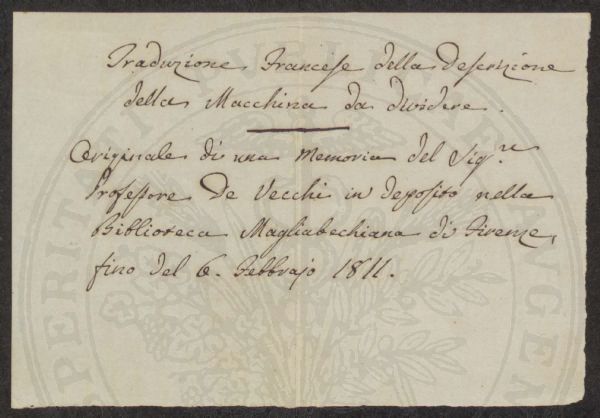 Traduzione Francese della Descrizione
della Macchina da dividere.
Originale di una Memoria del Sig.re
Professore De Vecchi in deposito nella
Biblioteca Magliabechiana di Firenze,
fino del 6. Febbrajo 1811.